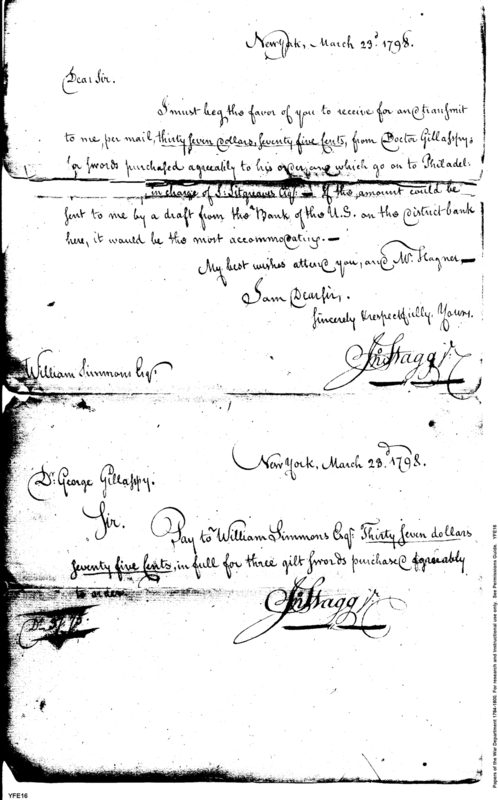 New York, March 23d. 1798.
Dear Sir.
I must beg the favor of you to receive for and transmit
to me, per mail, thirty seven dollars, seventy five Cents, from Doctor Gillaspy,
for swords purchased agreeably to his order, and which go on to Philadel-
in charge of Esqr. — If the amount could be
sent to me by a draft from the Bank of the U.S. on the district bank
here, it would be the most accommodating. —
My best wishes attend you, and Mr. Hagner. —
I am Dear Sir,
Sincerely & respectfully. Yours.
Jno. Stagg Jr.
William Simmons Esqr.
New York, March 23d. 1798.
Dr. George Gillaspy.
Sir.
Pay to William Simmons Esqr. Thirty seven dollars
seventy five Cents, in full for three gilt swords purchased agreeably
to order.
Jno. Stagg Jr.
YFE16
Papers of the War Department 1784-1800. For research and instructional use only. See Permissions Guide. YFE16